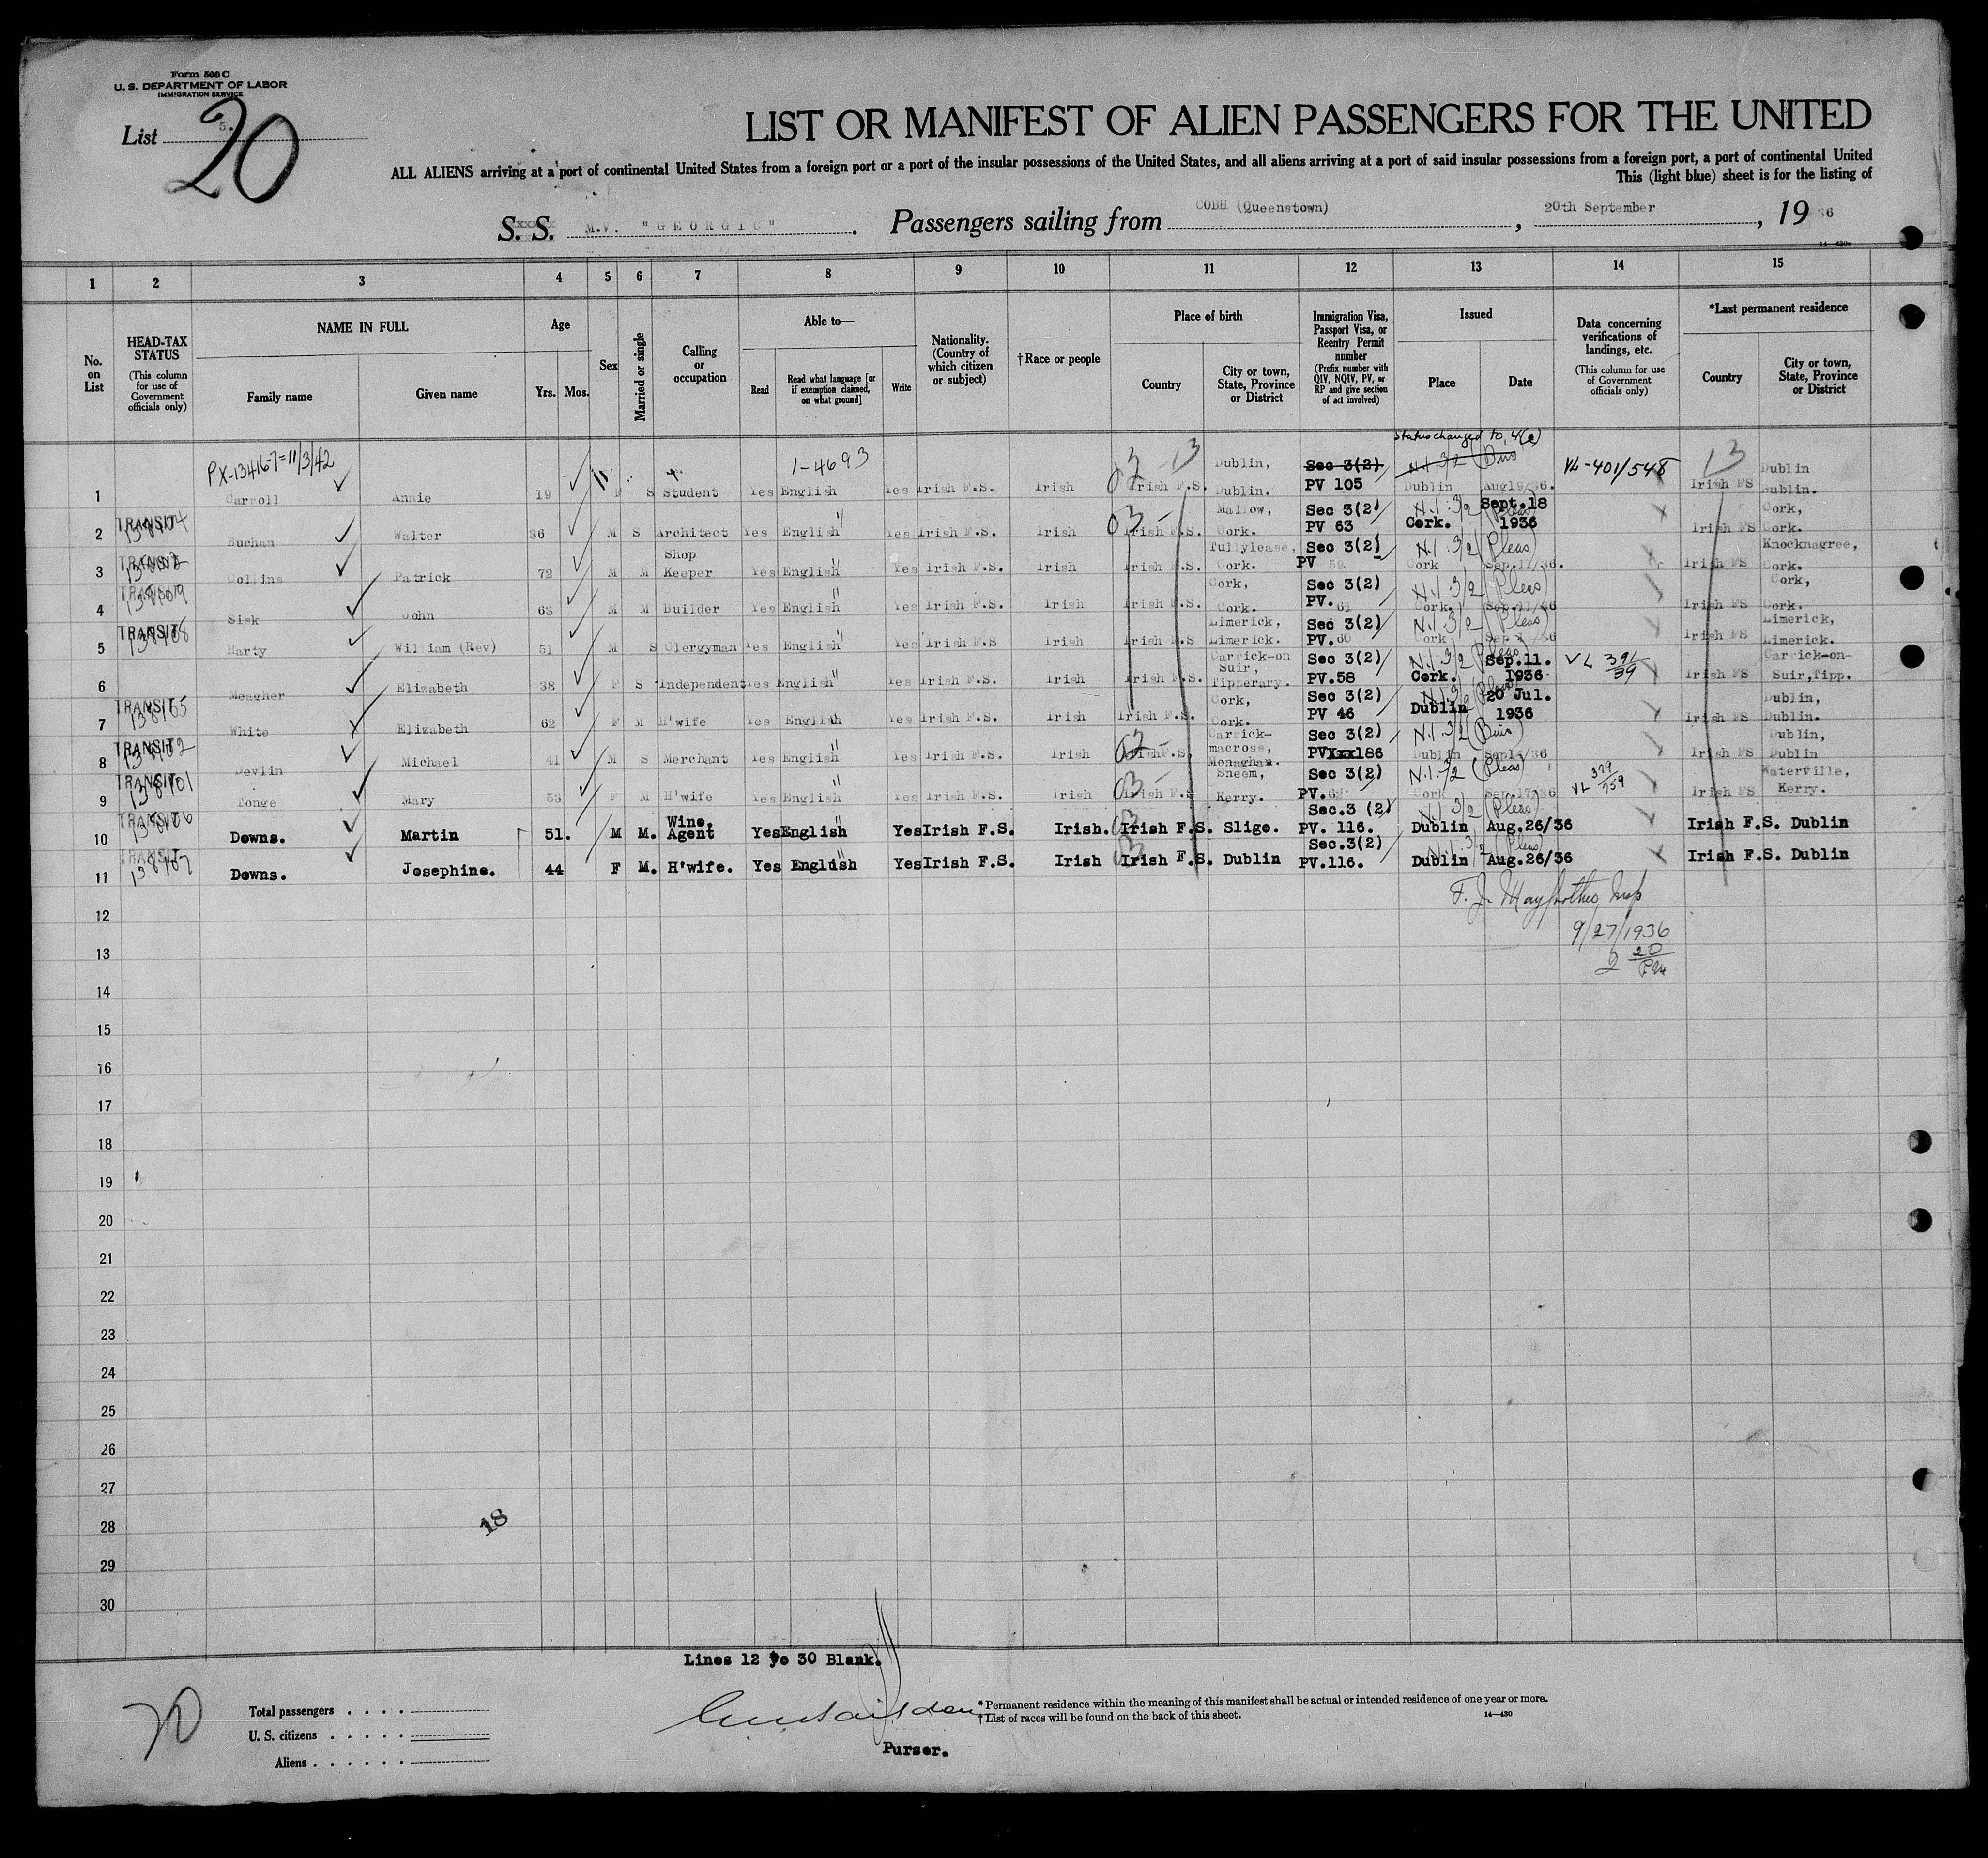 Form 500 C
U. S. DEPARTMENT OF LABOR
IMMIGRATION SERVICE
List 5.
20
LIST OR MANIFEST OF ALIEN PASSENGERS FOR THE UNITED
ALL ALIENS arriving at a port of continental United States from a foreign port or a port of the insular possessions of the United States, and all aliens arriving at a port of said insular possessions from a foreign port, a port of continental United
This (light blue) sheet is for the listing of
S. S. M.V. "GEORGIC". Passengers sailing from COBH (Queenstown), 20th September, 1936
14—430a
1 2 3 4 5 6 7 8 9 10 11 12 13 14 15
No. on List
HEAD-TAX STATUS (This column for use of Government officials only)
NAME IN FULL
Family name Given name
Age
Yrs. Mos.
Sex
Married or single
Calling or occupation
Able to—
Read Read what language [or if exemption claimed, on what ground] Write
Nationality. (Country of which citizen or subject)
†Race or people
Place of birth
Country City or town, State, Province or District
Immigration Visa, Passport Visa, or Reentry Permit number (Prefix number with QIV, NQIV, PV, or RP and give section of act involved)
Issued
Place Date
Data concerning verifications of landings, etc. (This column for use of Government officials only)
*Last permanent residence
Country City or town, State, Province or District
Status changed to 4(e)
PX-13416-7=11/3/42 1-4693 03 - 13 Sec 3(2) N.I 3/2 (Bus) VL-401/548 13
1 Carroll Annie 19 F S Student Yes English Yes Irish F.S. Irish Irish F.S. Dublin, Dublin. PV 105 Dublin Aug19/36. Irish FS Dublin Dublin.
2 TRANSIT Buchan Walter 36 M S Architect Yes English Yes Irish F.S. Irish Irish F.S. Mallow, Cork. Sec 3(2) PV 63 Cork. Sept.18 1936 Irish FS Cork, Cork.
3 TRANSIT Collins Patrick 72 M M Shop Keeper Yes English Yes Irish F.S. Irish Irish F.S. Tullylease, Cork. Sec 3(2) PV Cork Sep.11/36. Irish FS Knocknagree, Cork.
4 TRANSIT Sisk John 63 M M Builder Yes English Yes Irish F.S. Irish Irish F.S. Cork, Cork. Sec 3(2) PV. 61 Cork. Sep.11/36 Irish FS Cork, Cork.
5 TRANSIT Harty William (Rev) 51 M S Clergyman Yes English Yes Irish F.S Irish Irish F.S Limerick, Limerick. Sec 3(2) PV.60 Cork Irish FS Limerick, Limerick.
6 Meagher Elizabeth 38 F S Independent Yes English Yes Irish F.S. Irish Irish F.S. Carrick-on Suir, Tipperary. Sec 3(2) PV.58 Cork. Sep.11. 1936 VL 391/39 Irish FS Carrick-on- Suir,Tipp.
7 TRANSIT White Elizabeth 62 F M H'wife Yes English Yes Irish F.S. Irish Irish F.S. Cork, Cork. Sec 3(2) PV 46 Dublin 20 Jul. 1936 Irish FS Dublin, Dublin.
8 TRANSIT Devlin Michael 41 M S Merchant Yes English Yes Irish F.S. Irish Irish F.S, Carrick- macross, Monaghan. Sec 3(2) PVXxx186 Dublin Sep14/36 Irish FS Dublin, Dublin
9 TRANSIT Tonge Mary 53 F M H'wife Yes English Yes Irish F.S. Irish Irish F.S Sneem, Kerry. Sec 3(2) PV.62 Cork Sep.17/36 VL 379/759 Irish FS Waterville, Kerry.
10 TRANSIT Downs. Martin 51. M M. Wine. Agent Yes English Yes Irish F.S. Irish. Irish F.S. Sligo. Sec.3 (2) PV. 116. Dublin Aug.26/36 Irish F.S. Dublin
11 TRANSIT Downs. Josephine. 44 F M. H'wife. Yes English Yes Irish F.S. Irish Irish F.S. Dublin Sec.3(2) PV.116. Dublin Aug.26/36 Irish F.S. Dublin
9/27/1936
2 20 PM
12
13
14
15
16
17
18
19
20
21
22
23
24
25
26
27
28
29
30
18
Lines 12 to 30 Blank.
20
Total passengers
U. S. citizens
Aliens
Purser.
* Permanent residence within the meaning of this manifest shall be actual or intended residence of one year or more.
† List of races will be found on the back of this sheet.
14—430